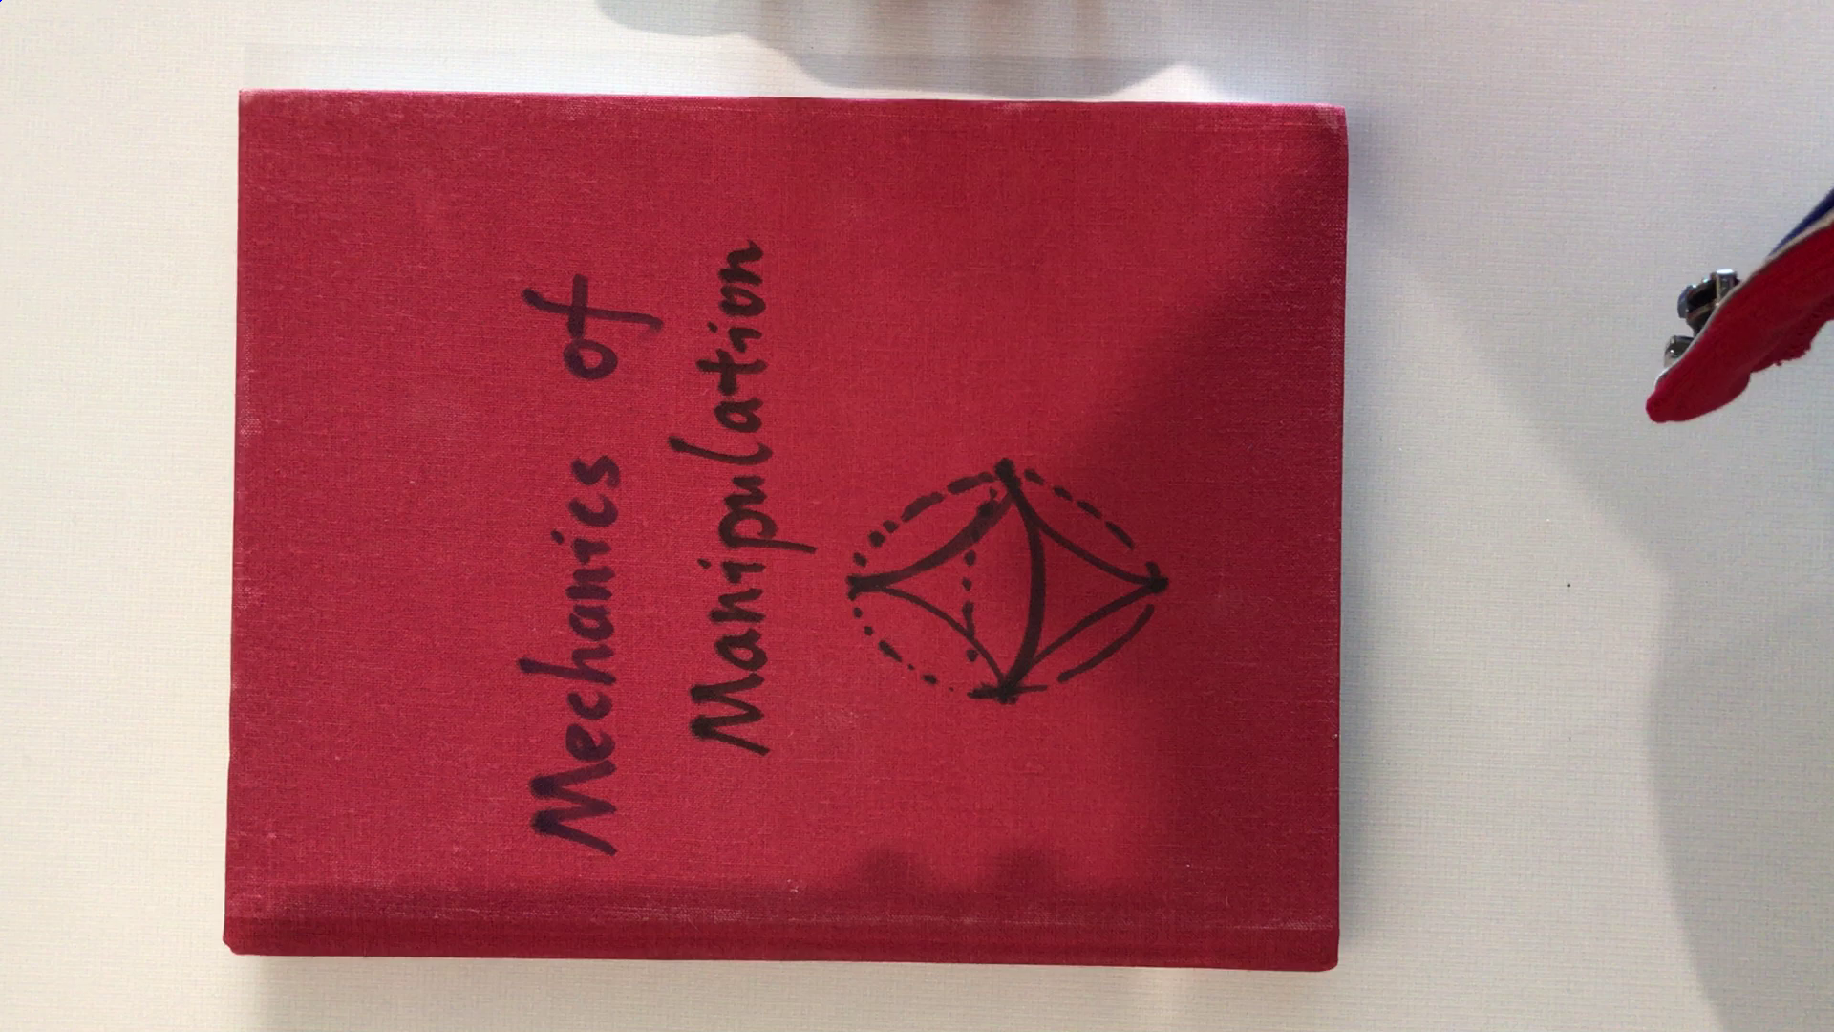 Mechanics of
Manipulation